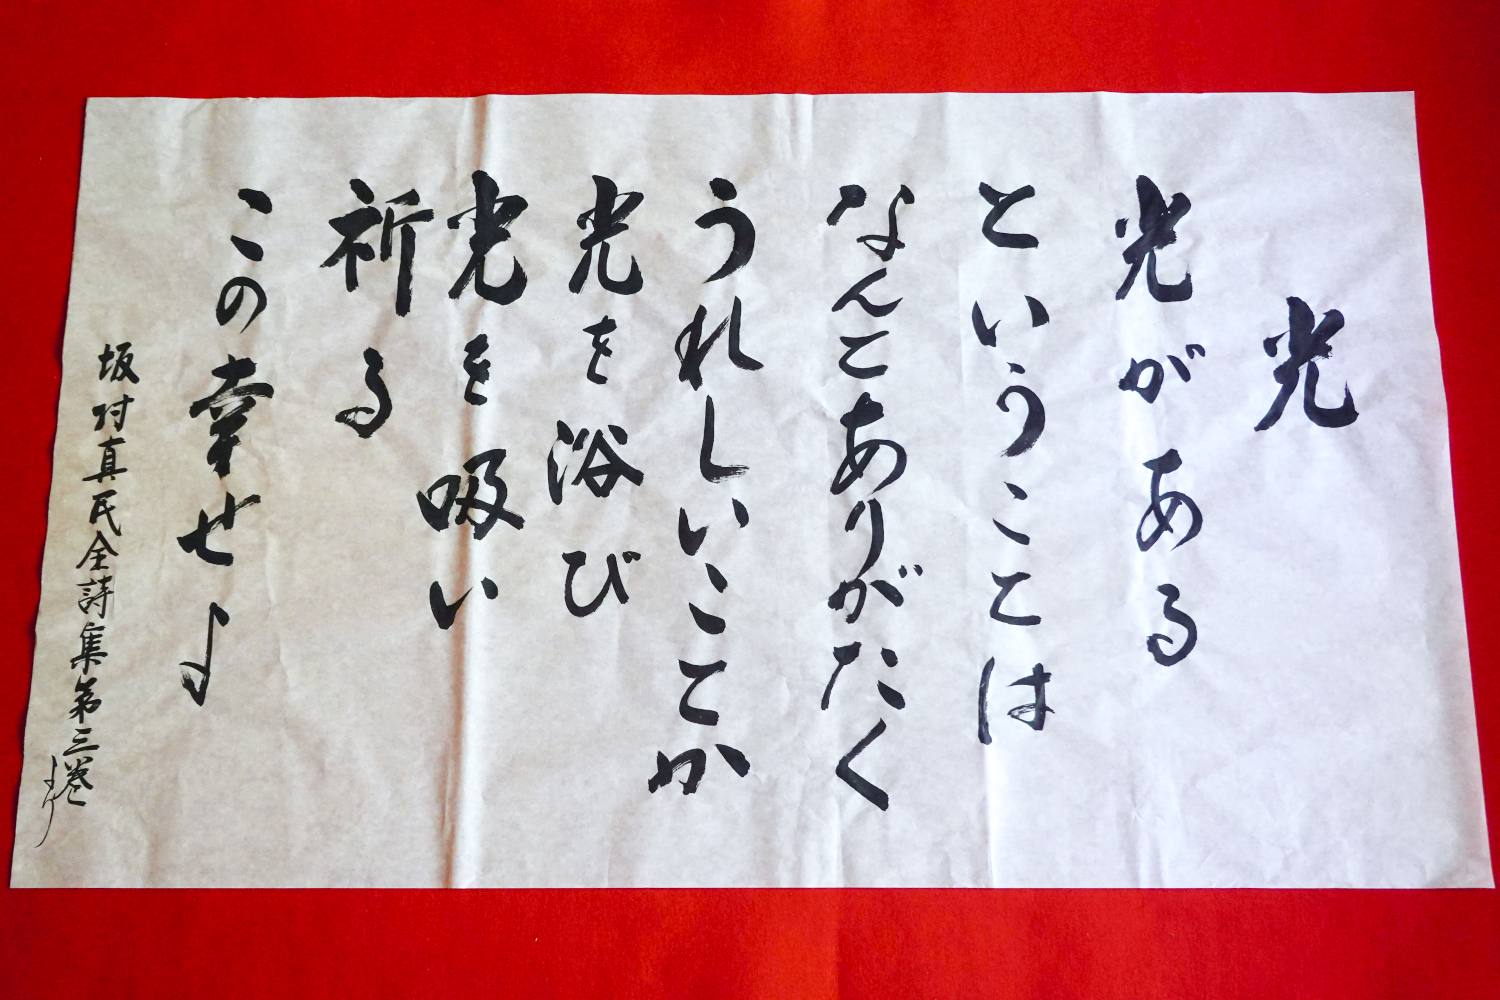 光
光がある
ということは
なんとありがたく
うれしいことか
光を浴び
光を吸い
祈る
この幸せよ
坂村真民全詩集第三巻より